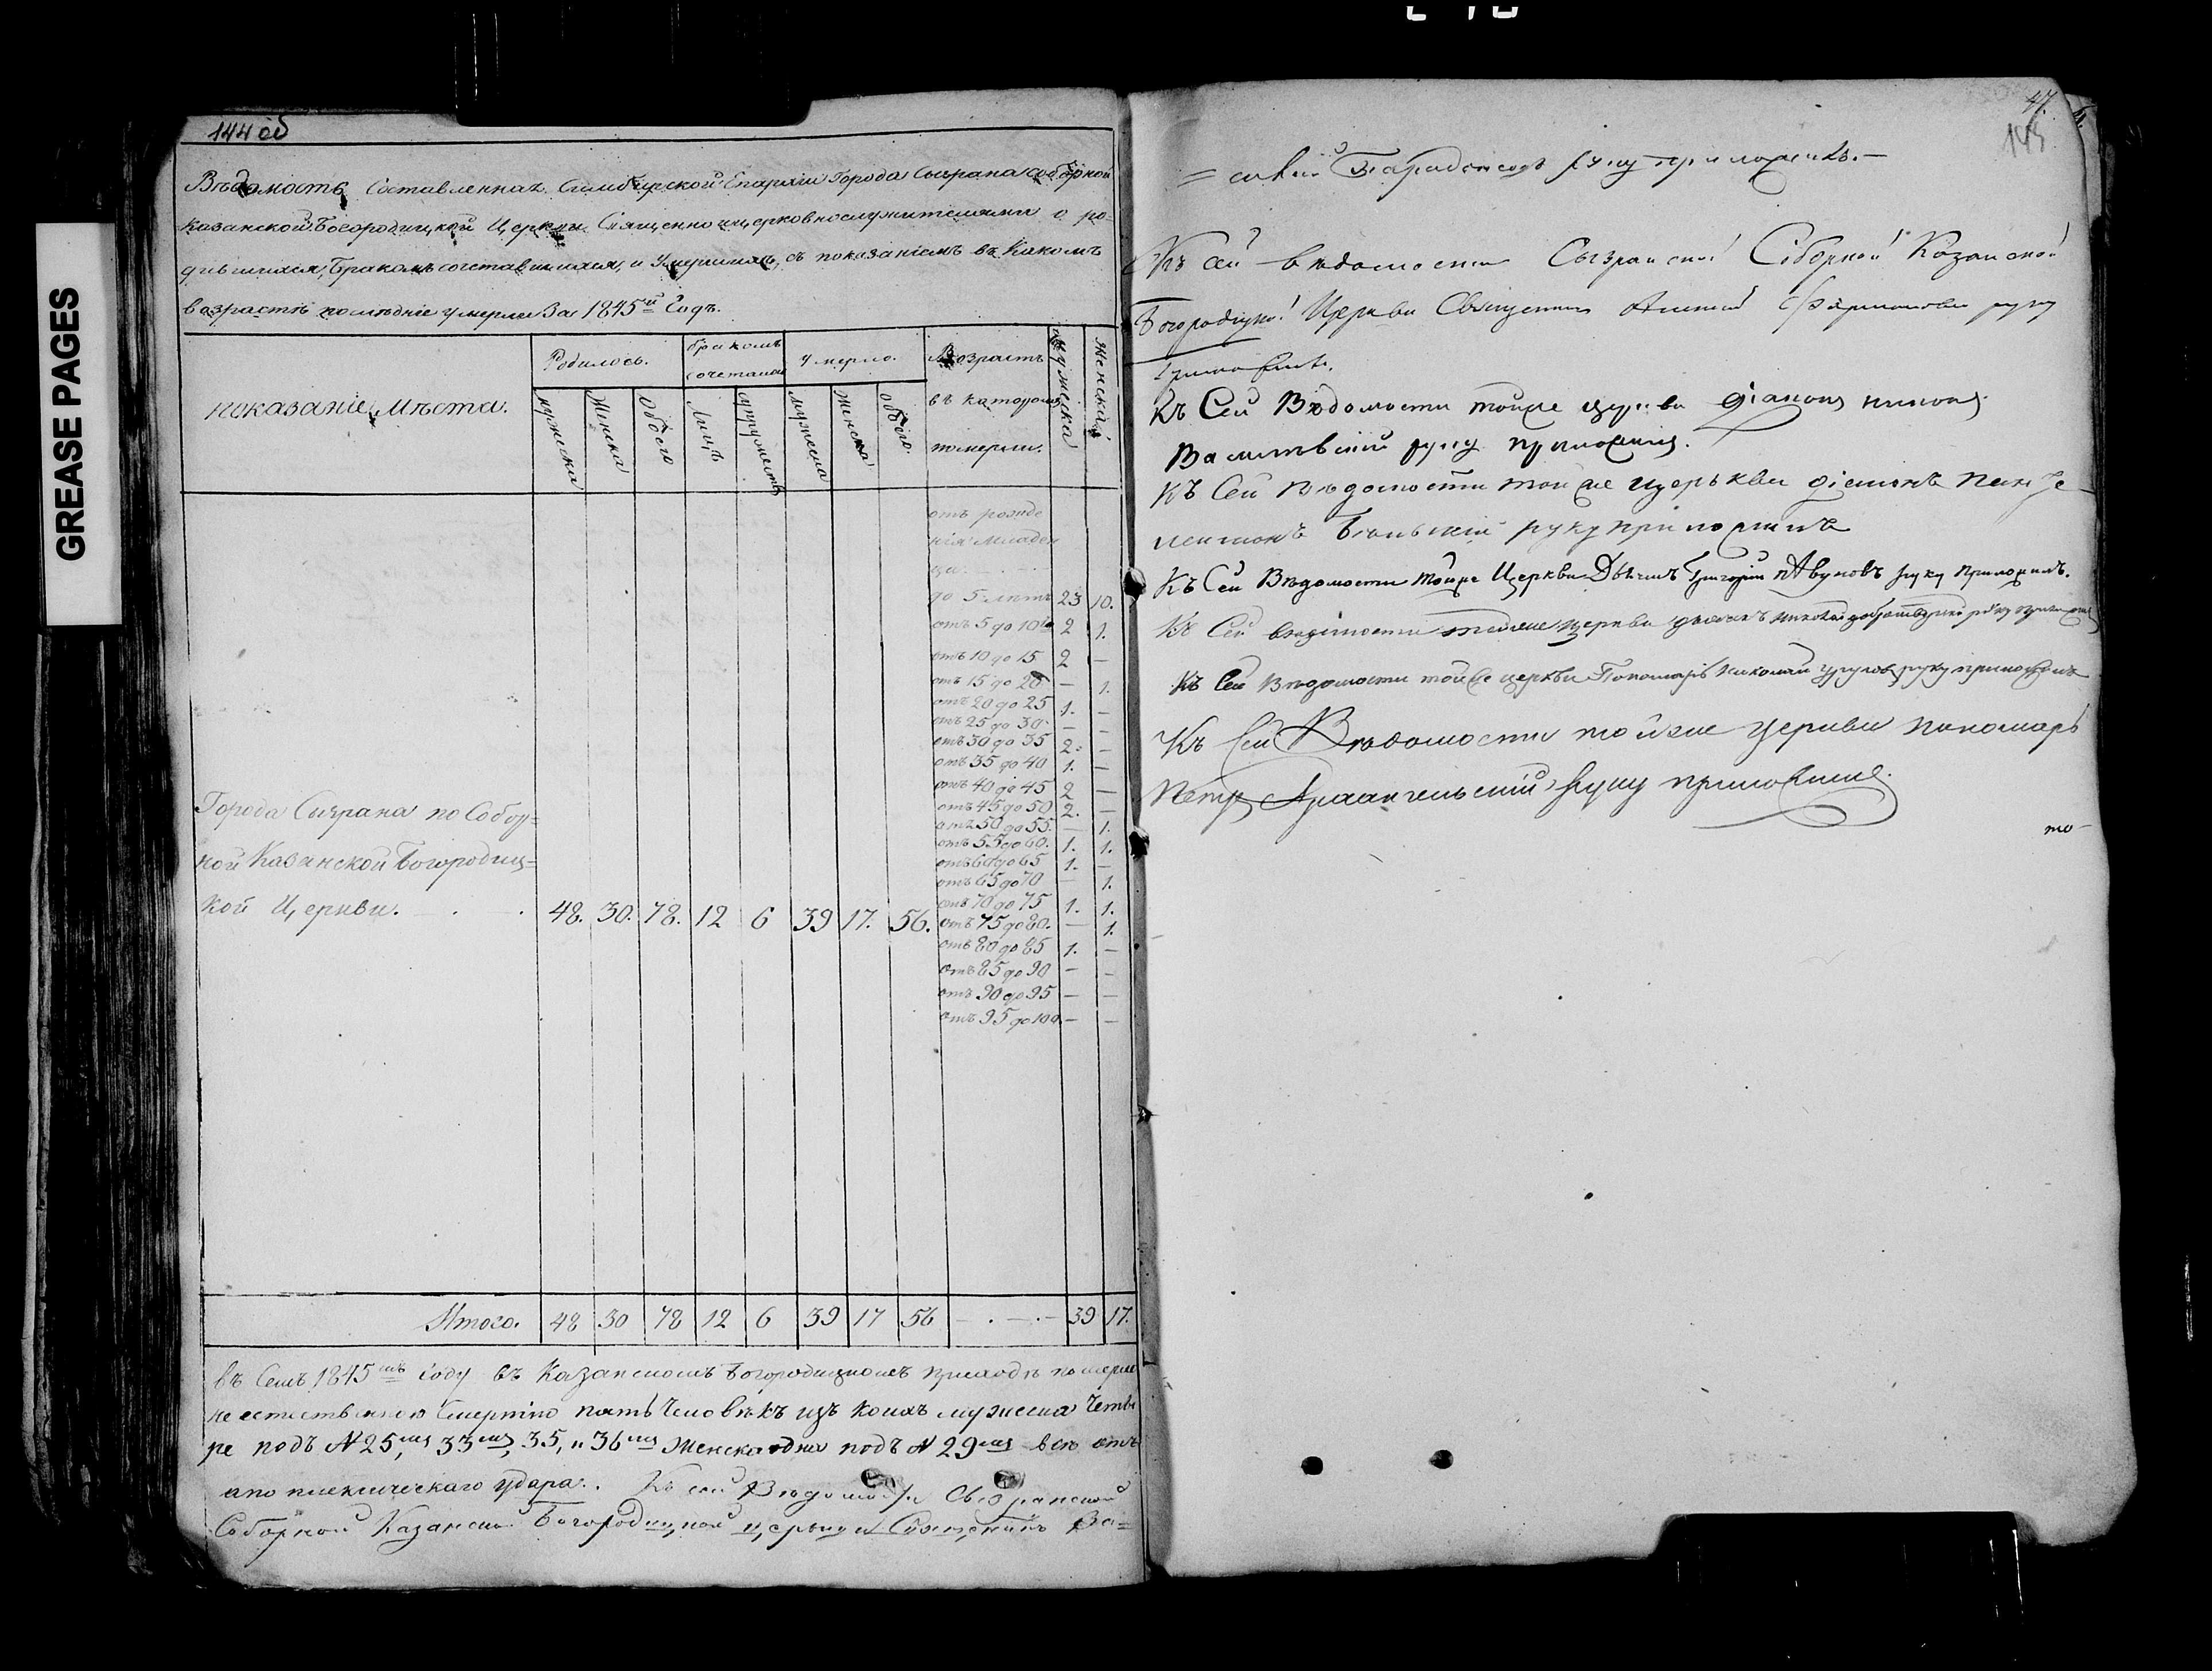 GREASE PAGES
144 об
Вѣдомость Составленная Симбирской Епархіи Города Сызрана соборной
Казанской Богородицкой Церкви Священноицерковнослужителями о ро-
дившихся, Бракомъ сочетавшихся, и Умершихъ, съ показаніемъ въ Какомъ
возрастѣ послѣдніе умерли За 1845й Годъ.
показаніе Мѣста.
Родилось.
бракомъ сочеталось
умерло.
Возрастъ въ которомъ померли.
мужеска
женской
мужеска
Женска
Обоего
Лицъ
супружествъ
мужеска
женска
обоего.
отъ рожде
нія Младен
ца
до 5 лѣтъ 23 10.
отъ 5 до 10 2 1.
отъ 10 до 15 2 —
отъ 15 до 20 — 1.
отъ 20 до 25 1. —
отъ 25 до 30 — —
отъ 30 до 35 2. —
отъ 35 до 40 1. —
отъ 40 до 45 2 —
отъ 45 до 50 2. —
отъ 50 до 55. — 1.
отъ 55 до 60. 1. 1.
отъ 60 до 65 1. —
отъ 65 до 70 — 1.
отъ 70 до 75 1. 1.
отъ 75 до 80. — 1.
отъ 80 до 85 1. —
отъ 85 до 90 — —
отъ 90 до 95 — —
отъ 95 до 100. — —
Города Сызрана по Собор=
ной Казанской Богородиц=
кой Церкви. 48. 30. 78. 12 6 39 17. 56.
Итого. 48 30 78 12 6 39 17 56 39 17.
въ Семъ 1845мъ Году въ Казанскомъ Богородицкомъ приходѣ померли
не естественною Смертію пять Человѣкъ изъ коихъ мужеска Четы
ре подъ № 25, 33, 35, и 36 Женска одна подъ № 29 всѣ отъ
апоплексическаго удара. Къ сей Вѣдомости Сызранской
Соборной Казанской Богородицкой церкви Священникъ Ва=
47.
145
руку приложилъ.—
Къ сей вѣдомости Сызранской Соборной Казанской
Богородицкой Церкви Священникъ руку
приложилъ.
Къ Сей Вѣдомости тойже церкви діаконъ
руку приложилъ.
Къ Сей Вѣдомости той же церькви діаконъ Панте
леимонъ руку приложилъ
Къ Сей Вѣдомости тойже Церкви Дьячекъ Григорій руку приложилъ.
Къ Сей вѣдомости тойже церкви дьячекъ Николай руку приложилъ
Къ Сей Вѣдомости той же церкви Пономарь Николай руку приложилъ
Къ Сей Вѣдомости тойже Церкви пономарь
Петръ Архангельскій руку приложилъ.
то-